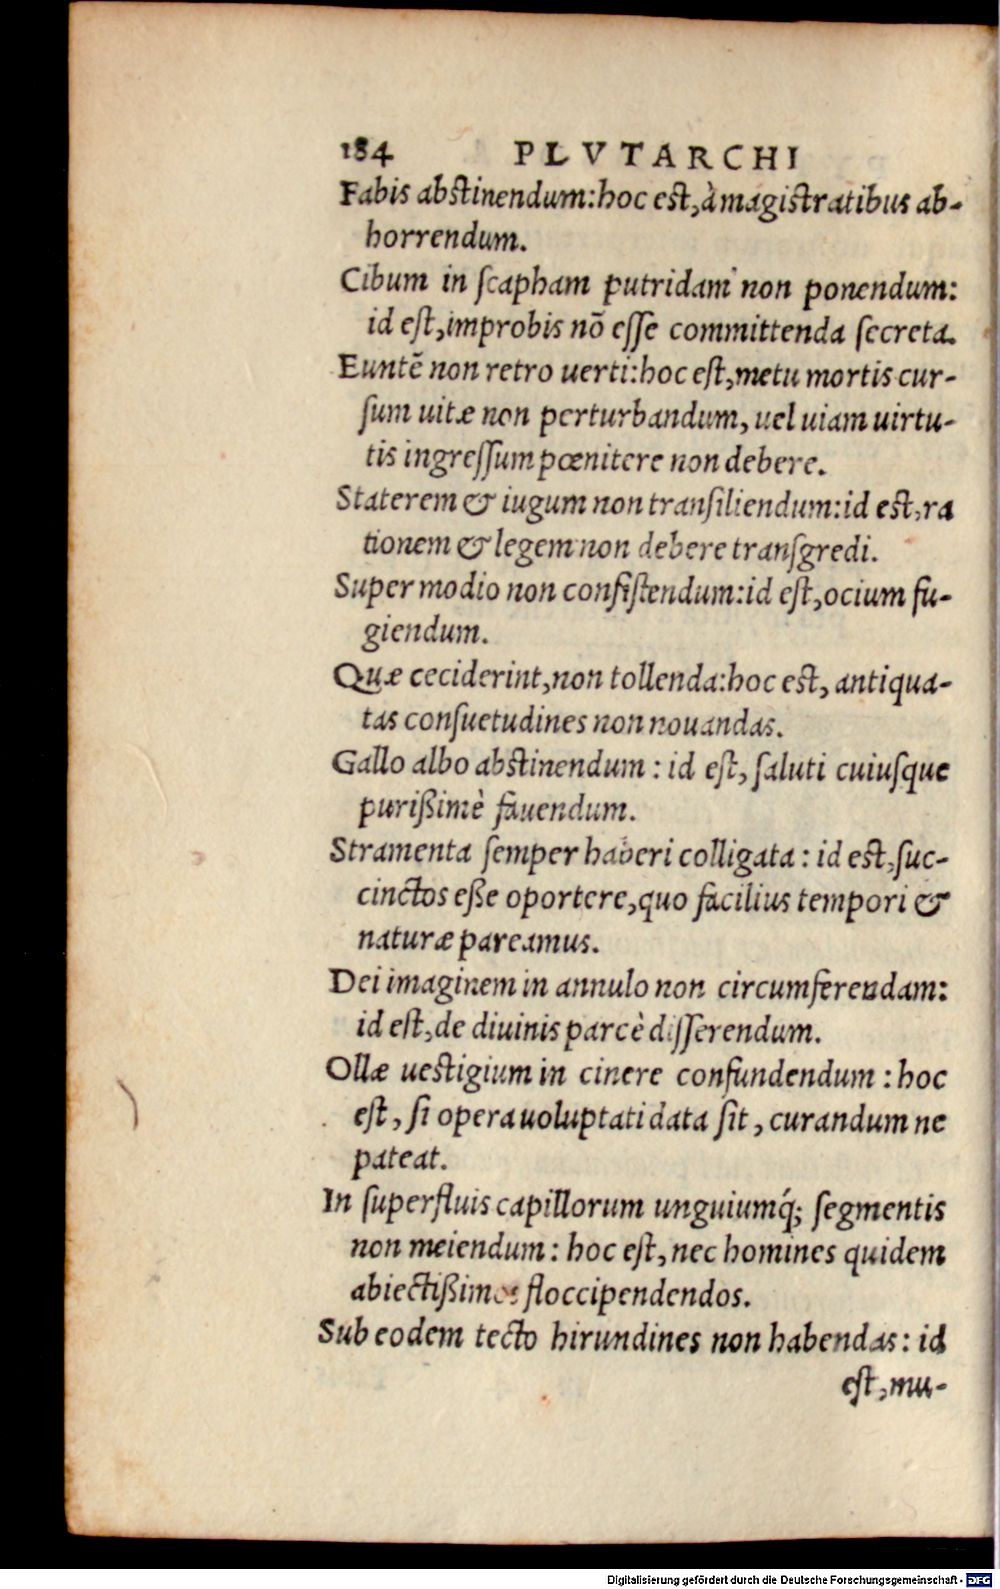 184 PLVTARCHI
Fabis abstinendum:hoc est,à magistratibus ab-
horrendum.
Cibum in ſcapham putridam non ponendum:
id eſt,improbis nō eſſe committenda ſecreta.
Euntē non retro uerti:hoc eſt,metu mortis cur-
ſum uitæ non perturbandum, uel uiam uirtu-
tis ingreſſum pœnitere non debere.
Staterem & iugum non tranſiliendum:id est,ra
tionem & legem non debere tranſgredi.
Super modio non conſiſtendum:id eſt,ocium fu-
giendum.
Quæ ceciderint,non tollenda:hoc est, antiqua-
tas conſuetudines non nouandas.
Gallo albo abstinendum : id eſt, ſaluti cuiuſque
purißimè fauendum.
Stramenta ſemper haberi colligata : id est,ſuc-
cinctos eße oportere,quo facilius tempori &
naturæ pareamus.
Dei imaginem in annulo non circumferendam:
id eſt,de diuinis parcè diſſerendum.
Ollæ uestigium in cinere confundendum : hoc
eſt, ſi opera uoluptati data ſit, curandum ne
pateat.
In ſuperfluis capillorum unguiumq́; ſegmentis
non meiendum : hoc eſt, nec homines quidem
abiectißimos floccipendendos.
Sub eodem tecto hirundines non habendas: id
eſt,mu-
Digitalisierung gefördert durch die Deutsche Forschungsgemeinschaft - DFG